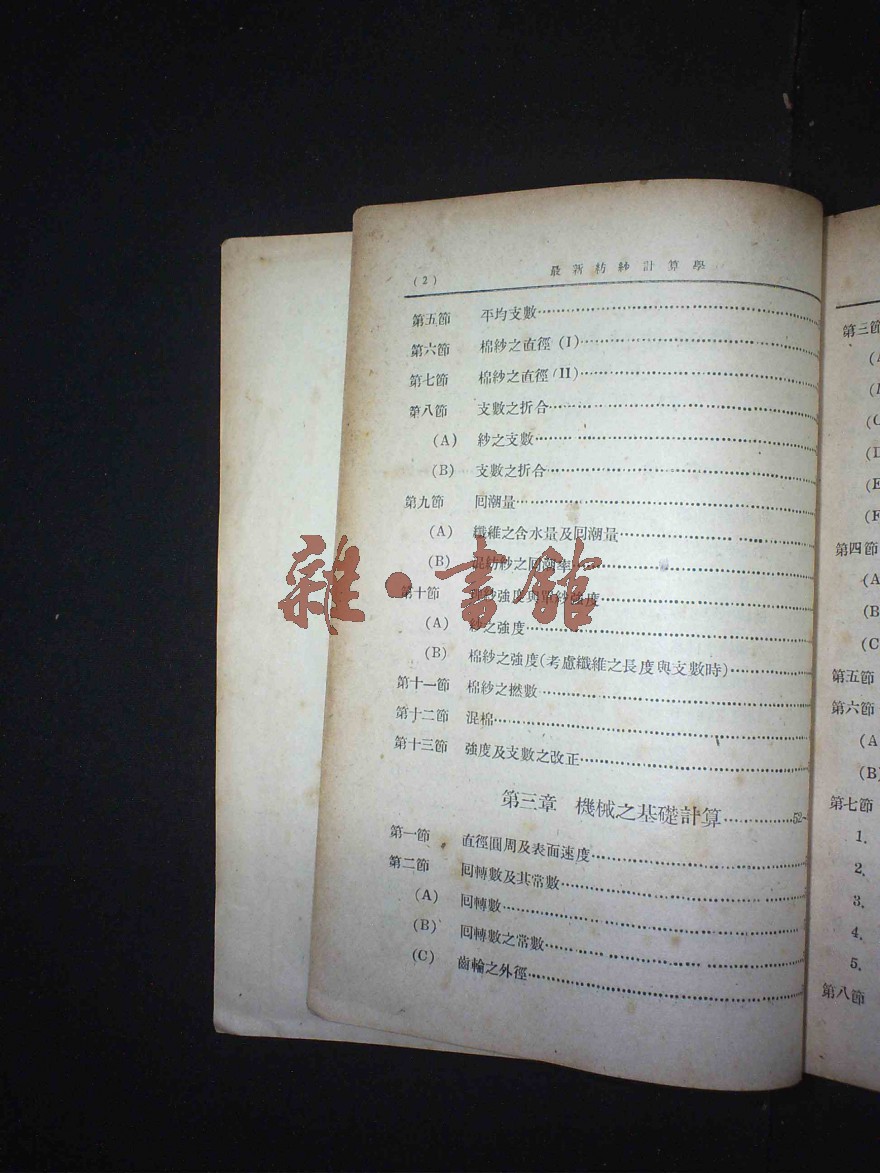 (2) 最新紡紗計算學
第五節 平均支數
第六節 棉紗之直徑 (I)
第七節 棉紗之直徑 (II)
第八節 支數之折合
(A) 紗之支數
(B) 支數之折合
第九節 回潮量
(A) 纖維之含水量及回潮量
(B) 混紡紗之回潮率
第十節 強度與單紗強度
(A) 紗之強度
(B) 棉紗之強度(考慮纖維之長度與支數時)
第十一節 棉紗之撚數
第十二節 混棉
第十三節 強度及支數之改正
第三章 機械之基礎計算 52
第一節 直徑圓周及表面速度
第二節 回轉數及其常數
(A) 回轉數
(B) 回轉數之常數
(C) 齒輪之外徑
雜·書館
第三節
第四節
(A
(B
(C
第五節
第六節
(A
(B)
第七節
1.
2.
3.
4.
5.
第八節